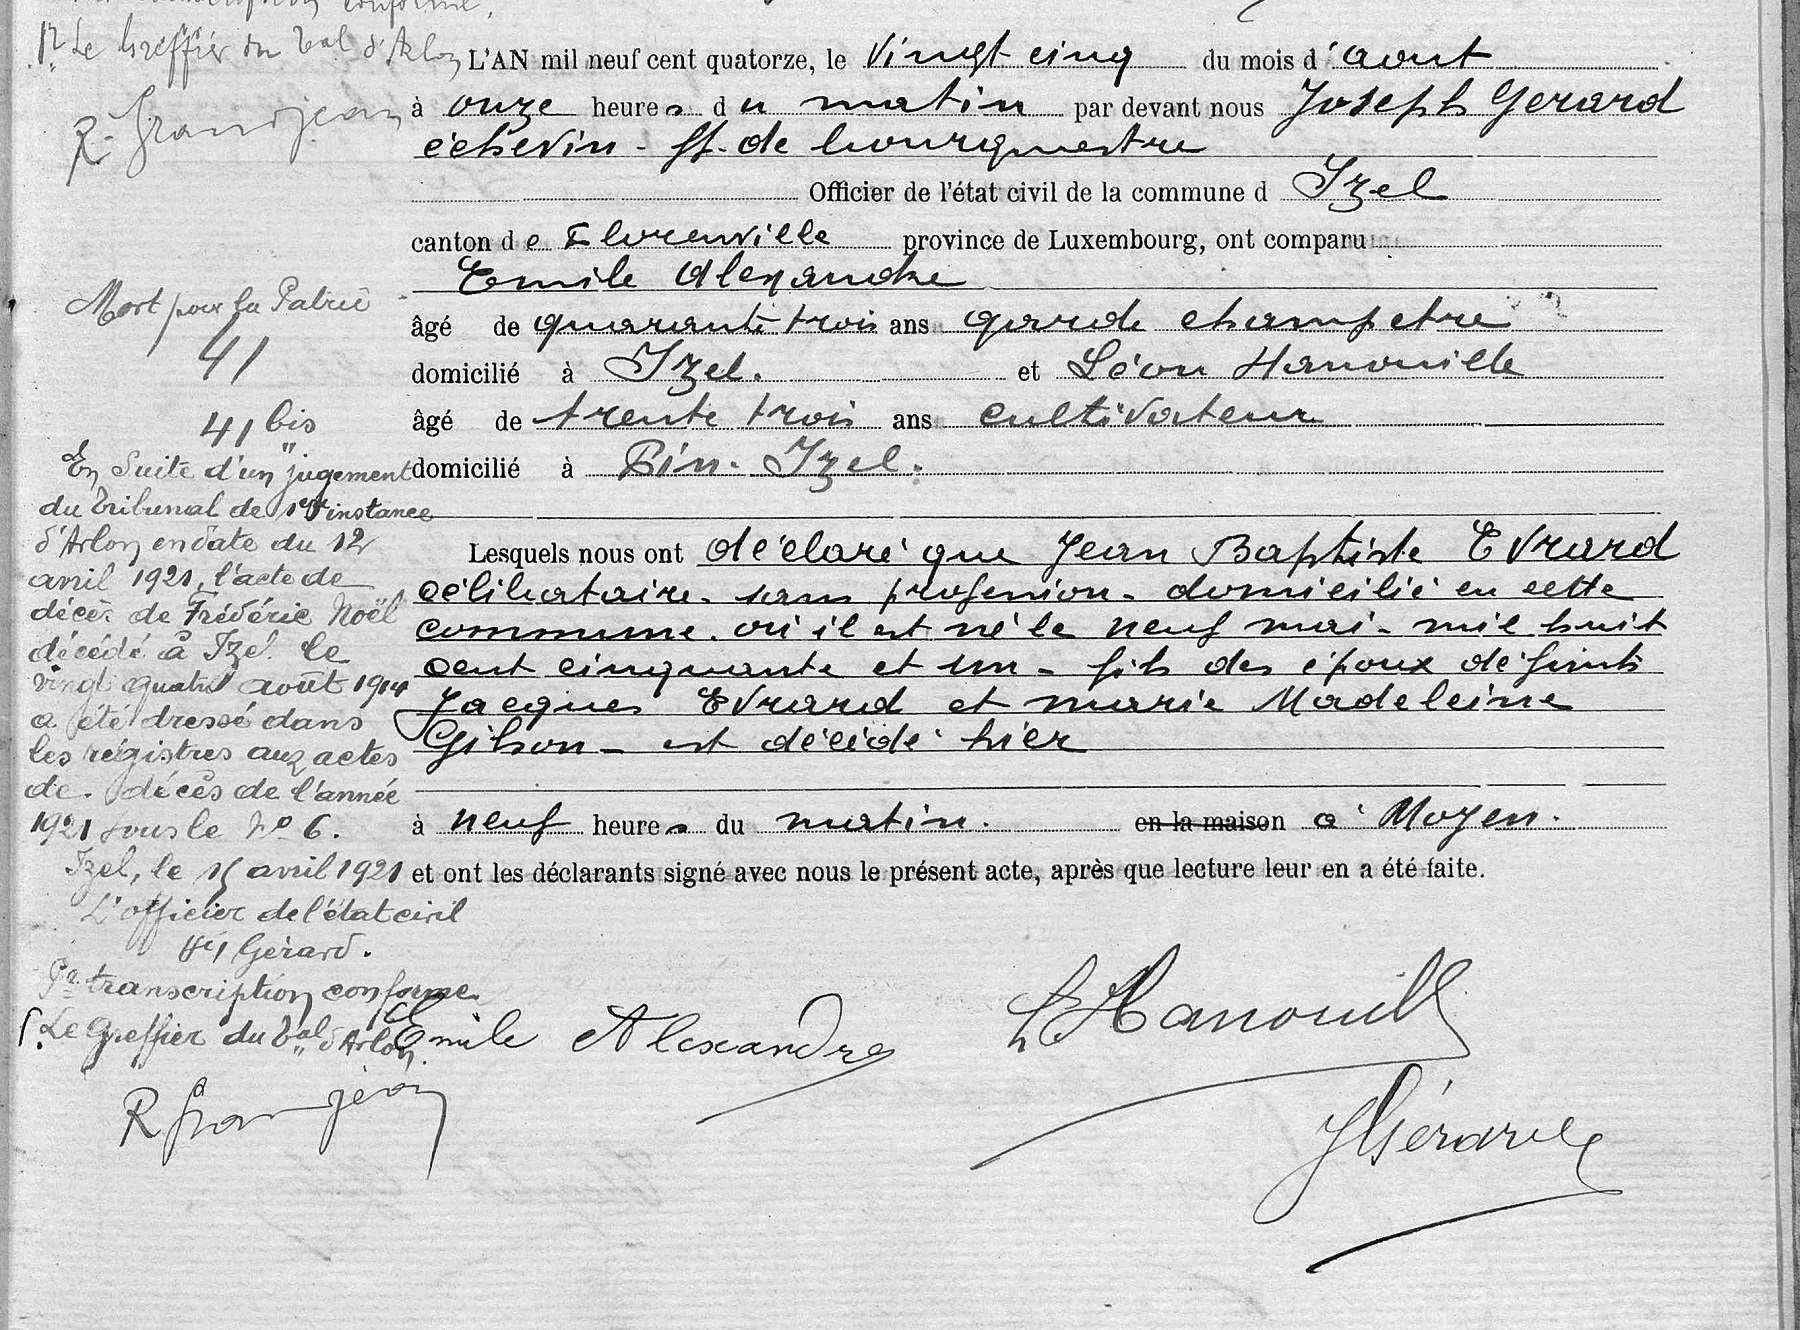 transcription conforme,
Pr Le Greffier du Bal d'Arlon
R. Grandjean
L'AN mil neuf cent quatorze, le vingt cinq du mois d'aout
à onze heures du matin par devant nous Joseph Gerard
échevin - ff. de bourgmestre
Officier de l'état civil de la commune d Izel
canton de Florenville province de Luxembourg, ont comparu
Emile Alexandre
âgé de quarante trois ans garde champetre
domicilié à Izel. et Léon Hanouille
âgé de trente trois ans cultivateur
domicilié à Pin. Izel.
Lesquels nous ont déclaré que Jean Baptiste Evrard
célibataire. sans profession. domicilié en cette
commune. où il est né le neuf mai. mil huit
cent cinquante et un - fils des époux défunts
Jacques Evrard et marie Madeleine
Gilson - est décédé hier
à neuf heures du matin. en la maison à Moyen.
et ont les déclarants signé avec nous le présent acte, après que lecture leur en a été faite.
Mort pour la Patrie
41
41 bis
En Suite d'un jugement
du Tribunal de 1ere instance
d'Arlon en date du 12
avril 1921, l'acte de
décès de Frédéric Noël
décédé à Izel le
vingt quatre août 1914
a été dressé dans
les régistres aux actes
de décès de l'année
1921 sous le No 6.
Izel, le 15 avril 1921
L'officier de l'état civil
Gérard.
Pr transcription conforme
Le Greffier du Bal d'Arlon
R Grandjean
Emile Alexandre
L Hanouille
J Gérard